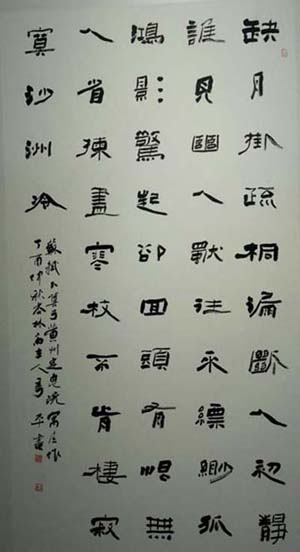 缺月掛疏桐漏斷人初靜
誰見幽人獨往来縹緲孤
鴻影驚起卻回頭有恨無
人省揀盡寒枝不肯棲寂
寞沙洲冷
蘇軾卜算子黄州定慧院寓居作
丁酉仲秋杏林主人平書